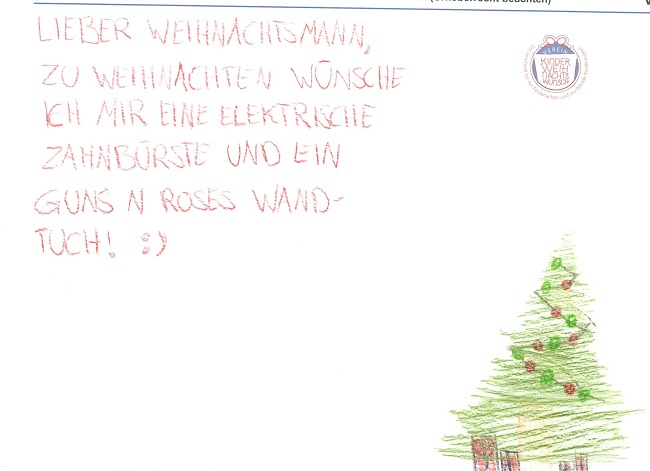 (Urheberrecht beachten)
LIEBER WEIHNACHTSMANN,
ZU WEIHNACHTEN WÜNSCHE
ICH MIR EINE ELEKTRISCHE
ZAHNBÜRSTE UND EIN
GUNS N ROSES WAND-
TUCH! :)
VEREIN
KINDER
WEIH
NACHTS
WUNSCH